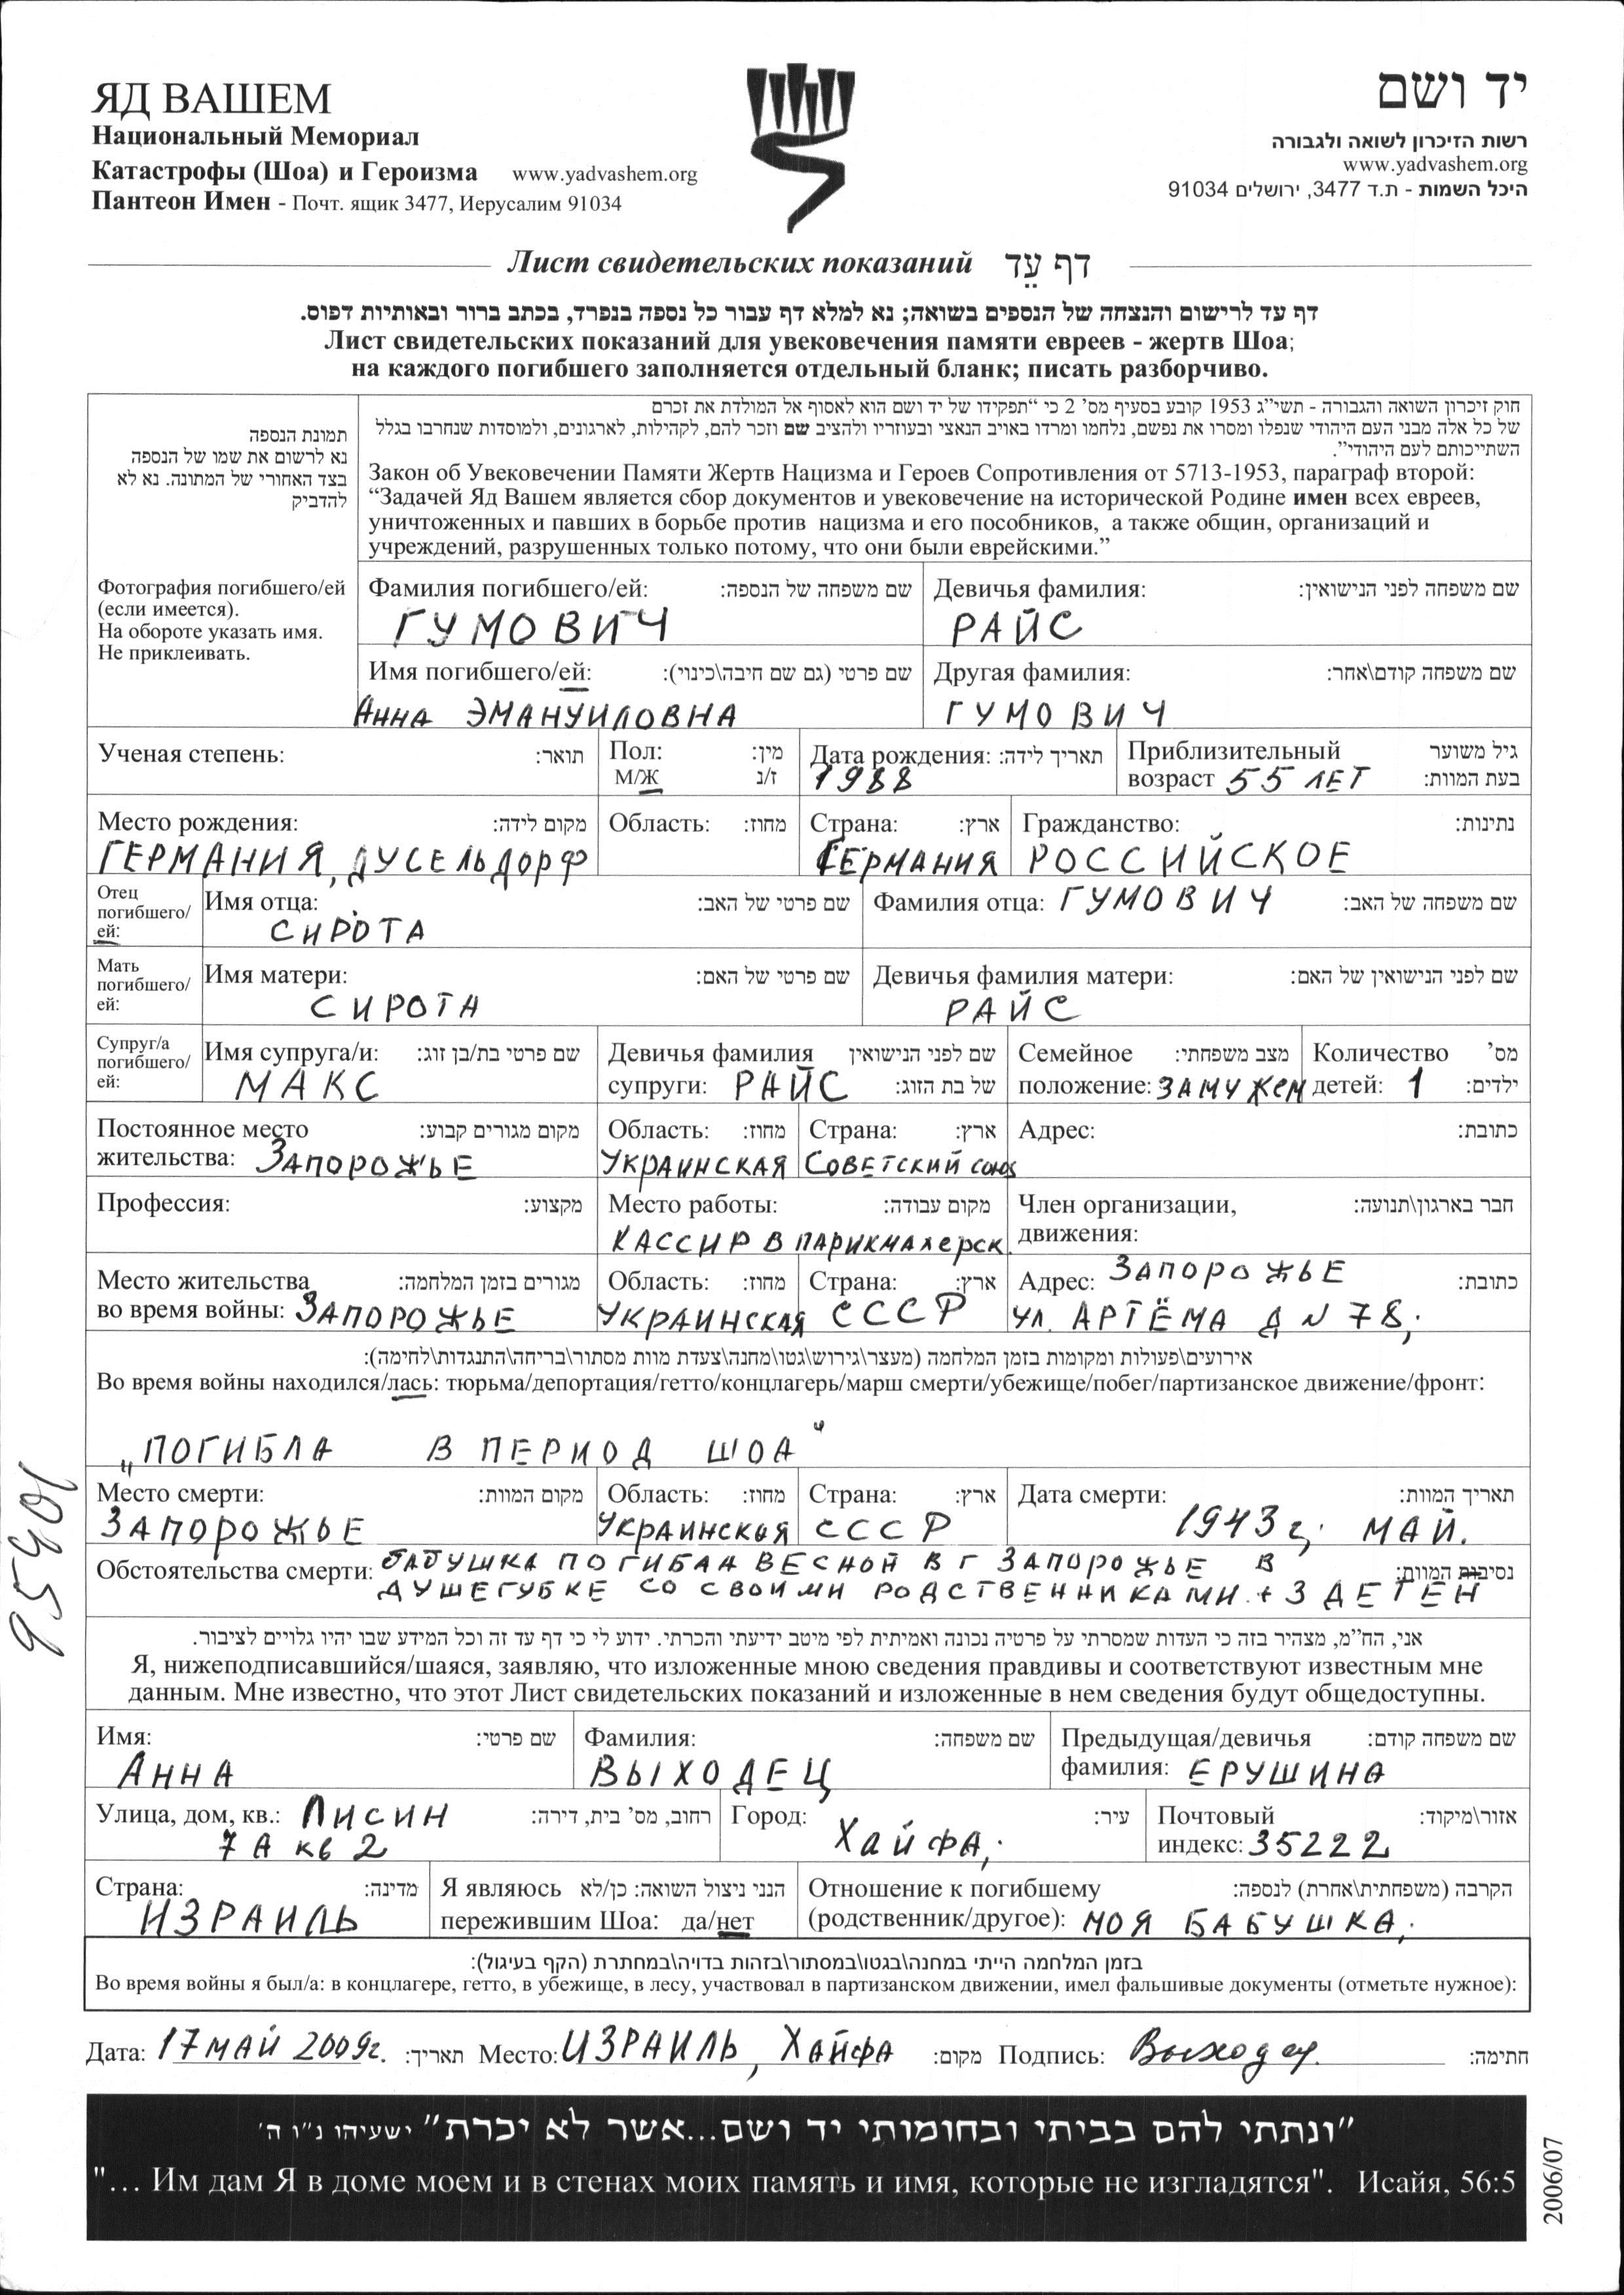 ЯД ВАШЕМ
Национальный Мемориал
Катастрофы (Шоа) и Героизма www.yadvashem.org
Пантеон Имен - Почт. ящик 3477, Иерусалим 91034
יד ושם
רשות הזיכרון לשואה ולגבורה
www.yadvashem.org
היכל השמות - ת.ד 3477, ירושלים 91034
Лист свидетельских показаний דף עֵד
דף עד לרישום והנצחה של הנספים בשואה; נא למלא דף עבור כל נספה בנפרד, בכתב ברור ובאותיות דפוס.
Лист свидетельских показаний для увековечения памяти евреев - жертв Шоа;
на каждого погибшего заполняется отдельный бланк; писать разборчиво.
תמונת הנספה
נא לרשום את שמו של הנספה
בצד האחורי של המתונה. נא לא
להדביק
Фотография погибшего/ей
(если имеется).
На обороте указать имя.
Не приклеивать.
חוק זיכרון השואה והגבורה - תשי"ג 1953 קובע בסעיף מס' 2 כי "תפקידו של יד ושם הוא לאסוף אל המולדת את זכרם
של כל אלה מבני העם היהודי שנפלו ומסרו את נפשם, נלחמו ומרדו באויב הנאצי ובעוזריו ולהציב שם וזכר להם, לקהילות, לארגונים, ולמוסדות שנחרבו בגלל
השתייכותם לעם היהודי".
Закон об Увековечении Памяти Жертв Нацизма и Героев Сопротивления от 5713-1953, параграф второй:
“Задачей Яд Вашем является сбор документов и увековечение на исторической Родине имен всех евреев,
уничтоженных и павших в борьбе против нацизма и его пособников, а также общин, организаций и
учреждений, разрушенных только потому, что они были еврейскими.”
Фамилия погибшего/ей: שם משפחה של הנספה: Девичья фамилия: שם משפחה לפני הנישואין:
ГУМОВИЧ РАЙС
Имя погибшего/ей: שם פרטי (גם שם חיבה\כינוי): Другая фамилия: שם משפחה קודם\אחר:
Анна ЭМАНУИЛОВНА ГУМОВИЧ
Ученая степень: תואר: Пол: מין: Дата рождения: תאריך לידה: Приблизительный גיל משוער
М/Ж ז/נ 1988 возраст 55 ЛЕТ בעת המוות:
Место рождения: מקום לידה: Область: מחוז: Страна: ארץ: Гражданство: נתינות:
ГЕРМАНИЯ, ДУСЕЛЬДОРФ ГЕРМАНИЯ РОССИЙСКОЕ
Отец погибшего/ей: Имя отца: שם פרטי של האב: Фамилия отца: ГУМОВИЧ שם משפחה של האב:
СИРОТА
Мать погибшего/ей: Имя матери: שם פרטי של האם: Девичья фамилия матери: שם לפני הנישואין של האם:
СИРОТА РАЙС
Супруг/а погибшего/ей: Имя супруга/и: שם פרטי בת/בן זוג: Девичья фамилия שם לפני הנישואין Семейное מצב משפחתי: Количество מס'
МАКС супруги: РАЙС של בת הזוג: положение: ЗАМУЖЕМ детей: 1 ילדים:
Постоянное место מקום מגורים קבוע: Область: מחוז: Страна: ארץ: Адрес: כתובת:
жительства: ЗАПОРОЖЬЕ УКРАИНСКАЯ СОВЕТСКИЙ СОЮЗ
Профессия: מקצוע: Место работы: מקום עבודה: Член организации, חבר בארגון\תנועה:
КАССИР В ПАРИКМАХЕРСК. движения:
Место жительства מגורים בזמן המלחמה: Область: מחוז: Страна: ארץ: Адрес: ЗАПОРОЖЬЕ כתובת:
во время войны: ЗАПОРОЖЬЕ УКРАИНСКАЯ СССР УЛ. АРТЁМА Д N 78,
אירועים\פעולות ומקומות בזמן המלחמה (מעצר\גירוש\גטו\מחנה\צעדת מוות מסתור\בריחה\התנגדות\לחימה):
Во время войны находился/лась: тюрьма/депортация/гетто/концлагерь/марш смерти/убежище/побег/партизанское движение/фронт:
„ПОГИБЛА В ПЕРИОД ШОА“
Место смерти: מקום המוות: Область: מחוז: Страна: ארץ: Дата смерти: תאריך המוות:
ЗАПОРОЖЬЕ УКРАИНСКАЯ СССР 1943 г. МАЙ.
Обстоятельства смерти: БАБУШКА ПОГИБЛА ВЕСНОЙ В Г ЗАПОРОЖЬЕ В נסיבות המוות:
ДУШЕГУБКЕ СО СВОИМИ РОДСТВЕННИКАМИ + 3 ДЕТЕЙ
אני, הח"מ, מצהיר בזה כי העדות שמסרתי על פרטיה נכונה ואמיתית לפי מיטב ידיעתי והכרתי. ידוע לי כי דף עד זה וכל המידע שבו יהיו גלויים לציבור.
Я, нижеподписавшийся/шаяся, заявляю, что изложенные мною сведения правдивы и соответствуют известным мне
данным. Мне известно, что этот Лист свидетельских показаний и изложенные в нем сведения будут общедоступны.
Имя: שם פרטי: Фамилия: שם משפחה: Предыдущая/девичья שם משפחה קודם:
АННА ВЫХОДЕЦ фамилия: ЕРУШИНА
Улица, дом, кв.: ЛИСИН רחוב, מס' בית, דירה: Город: עיר: Почтовый אזור\מיקוד:
7 А кв 2 ХАЙФА, индекс: 35222
Страна: מדינה: Я являюсь הנני ניצול השואה: כן/לא Отношение к погибшему הקרבה (משפחתית\אחרת) לנספה:
ИЗРАИЛЬ пережившим Шоа: да/нет (родственник/другое): МОЯ БАБУШКА,
בזמן המלחמה הייתי במחנה\בגטו\במסתור\בזהות בדויה\במחתרת (הקף בעיגול):
Во время войны я был/а: в концлагере, гетто, в убежище, в лесу, участвовал в партизанском движении, имел фальшивые документы (отметьте нужное):
Дата: 17 МАЙ 2009г. תאריך: Место: ИЗРАИЛЬ, ХАЙФА מקום: Подпись: Выходец חתימה:
"ונתתי להם בביתי ובחומותי יד ושם...אשר לא יכרת" ישעיהו נ"ו ה'
"... Им дам Я в доме моем и в стенах моих память и имя, которые не изгладятся". Исайя, 56:5
2006/07